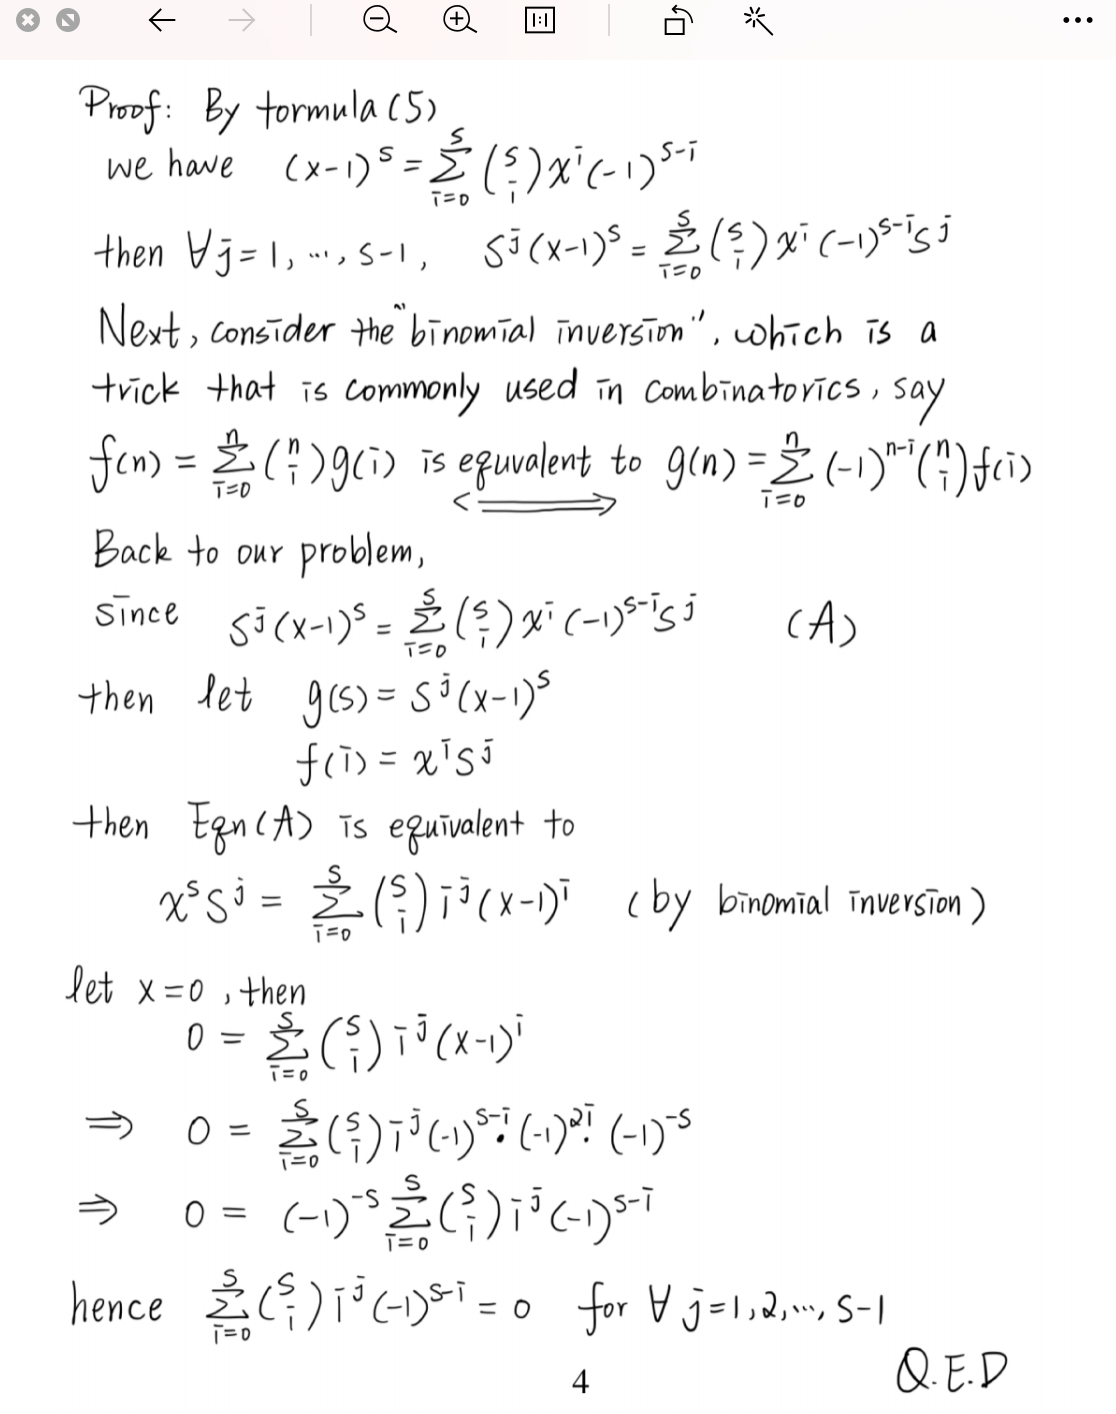 Proof: By formula (5)
we have (x-1)^s = Σ_{i=0}^{s} (s i) x^i (-1)^{s-i}
then ∀ j = 1, ..., s-1, s^j (x-1)^s = Σ_{i=0}^{s} (s i) x^i (-1)^{s-i} s^j
Next, consider the "binomial inversion", which is a
trick that is commonly used in combinatorics, say
f(n) = Σ_{i=0}^{n} (n i) g(i) is equvalent to g(n) = Σ_{i=0}^{n} (-1)^{n-i} (n i) f(i)
<====>
Back to our problem,
since s^j (x-1)^s = Σ_{i=0}^{s} (s i) x^i (-1)^{s-i} s^j (A)
then let g(s) = s^j (x-1)^s
f(i) = x^i s^j
then Eqn (A) is equivalent to
x^s s^j = Σ_{i=0}^{s} (s i) i^j (x-1)^i (by binomial inversion)
let x=0, then
0 = Σ_{i=0}^{s} (s i) i^j (x-1)^i
⇒ 0 = Σ_{i=0}^{s} (s i) i^j (-1)^{s-i} · (-1)^{2i} · (-1)^{-s}
⇒ 0 = (-1)^{-s} Σ_{i=0}^{s} (s i) i^j (-1)^{s-i}
hence Σ_{i=0}^{s} (s i) i^j (-1)^{s-i} = 0 for ∀ j = 1, 2, ..., s-1
Q.E.D
4